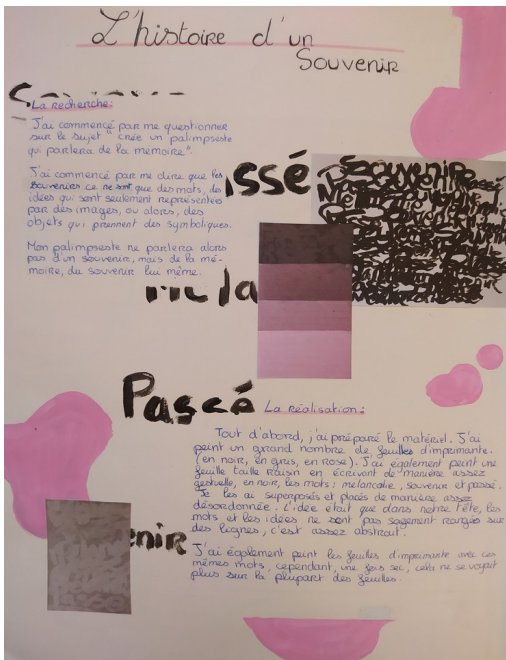 L'histoire d'un
Souvenir
La recherche:
J'ai commencé par me questionner
sur le sujet "crée un palimpseste
qui parlera de la mémoire".
J'ai commencé par me dire que les
souvenirs ce ne sont que des mots, des
idées qui sont seulement représentés
par des images, ou alors, des
objets qui prennent des symboliques.
Mon palimpseste ne parlera alors
pas d'un souvenir, mais de la mé-
moire, du souvenir lui même.
ssé
Souvenir
la
Passé
La réalisation:
Tout d'abord, j'ai préparé le matériel. J'ai
peint un grand nombre de feuilles d'imprimante.
(en noir, en gris, en rose). J'ai également peint une
feuille taille Raisin en écrivant de manière assez
gestuelle, en noir, les mots: melancolie, souvenir et passé.
Je les ai superposés et placés de manière assez
désordonnée. L'idée était que dans notre tête, les
mots et les idées ne sont pas sagement rangés sur
des lignes, c'est assez abstrait.
enir
J'ai également peint les feuilles d'imprimante avec ces
mêmes mots, cependant, une fois sec, cela ne se voyait
plus sur la plupart des feuilles.